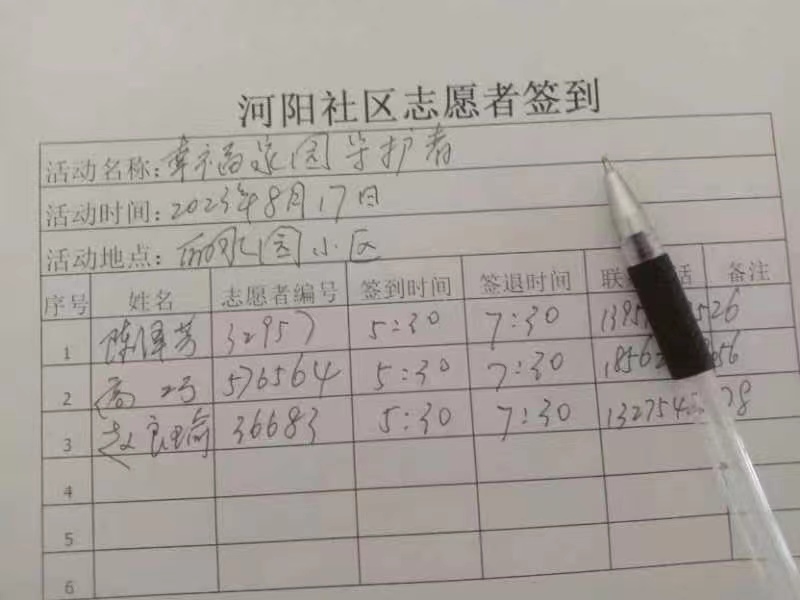 河阳社区志愿者签到
活动名称：幸福家园守护者
活动时间：2023年8月17日
活动地点：丽水园小区
序号 姓名 志愿者编号 签到时间 签退时间 联 话 备注
1 陈泽芳 32957 5:30 7:30
2 高巧 576564 5:30 7:30
3 赵良瑜 36683 5:30 7:30
4
5
6